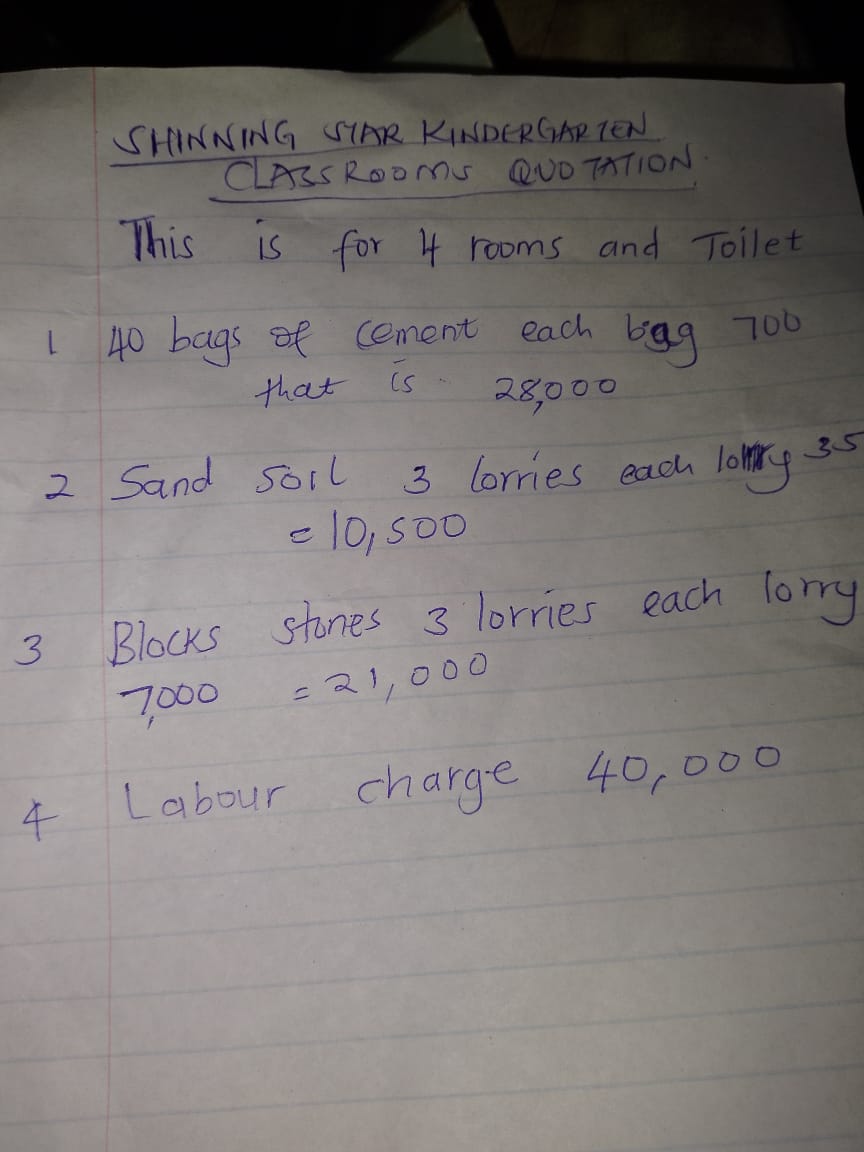 SHINNING STAR KINDERGARTEN
CLASSROOMS QUOTATION.
This is for 4 rooms and Toilet
1 40 bags of cement each bag 700
that is 28,000
2 Sand soil 3 lorries each lorry 35
= 10,500
3 Blocks stones 3 lorries each lorry
7,000 = 21,000
4 Labour charge 40,000